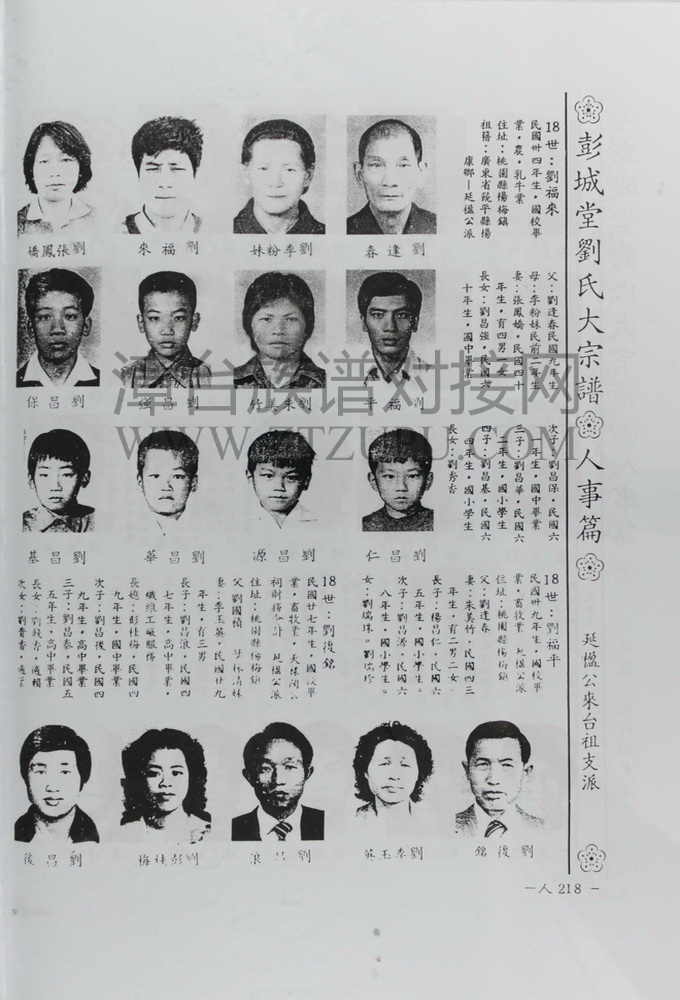 彭城堂劉氏大宗譜 人事篇 延楹公來台祖支派
18世：劉福來
民國卅四年生，國校畢
業，農，乳牛業
住址：桃園縣楊梅鎮
祖籍：廣東省饒平縣楊
康鄉－延楹公派
父：劉逢春民國九年生
母：李粉妹民前二年生
妻：張鳳嬌，民國四十
年生，有四男二女
長女：劉昌強，民國六
十年生，國中畢業
次子：劉昌保，民國六
一年生，國中畢業
三子：劉昌華，民國六
二年生，國小學生
四子：劉昌基，民國六
四年生，國小學生
長女：劉秀香
劉逢春
劉李粉妹
劉福來
劉張鳳嬌
劉福平
劉朱美竹
劉昌強
劉昌保
劉昌仁
劉昌源
劉昌華
劉昌基
18世：劉福平
民國卅九年生，國校畢
業，畜牧業 延楹公派
住址：桃園縣楊梅鎮
父：劉逢春
妻：朱美竹，民國四三
年生，有二男二女
長子：楊昌仁，民國六
五年生，國小學生。
次子：劉昌源，民國六
八年生，國小學生。
女：劉瑞珠。劉瑞珍
18世：劉復銘
民國廿七年生，國校畢
業，畜牧業，
祠財務 延楹公派
住址：桃園縣楊梅鎮
父 劉國楨
妻：李玉英，民國廿九
年生，有三男
長子：劉昌浪，民國四
七年生，高中畢業，
長媳：彭桂梅，民國四
九年生，國中畢業
次子：劉昌後，民國四
九年生，高中畢業
三子：劉昌泰，民國五
五年生，高中畢業
長女：劉錢香，適賴
劉復銘
劉李玉英
劉昌浪
劉彭桂梅
劉昌後
－人 218 －
漳台族谱对接网
WWW.ZTZUPU.COM